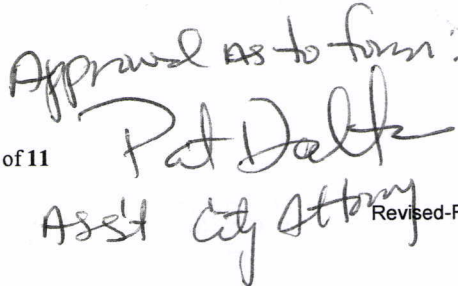 Approved As to form:
of 11
Pat Dalton
Ass't City Attorney
Revised-F